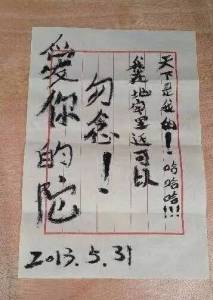 天下是我的！哈哈哈!!!
我先地窖里还可以
勿念！
爱你的陀
2013.5.31